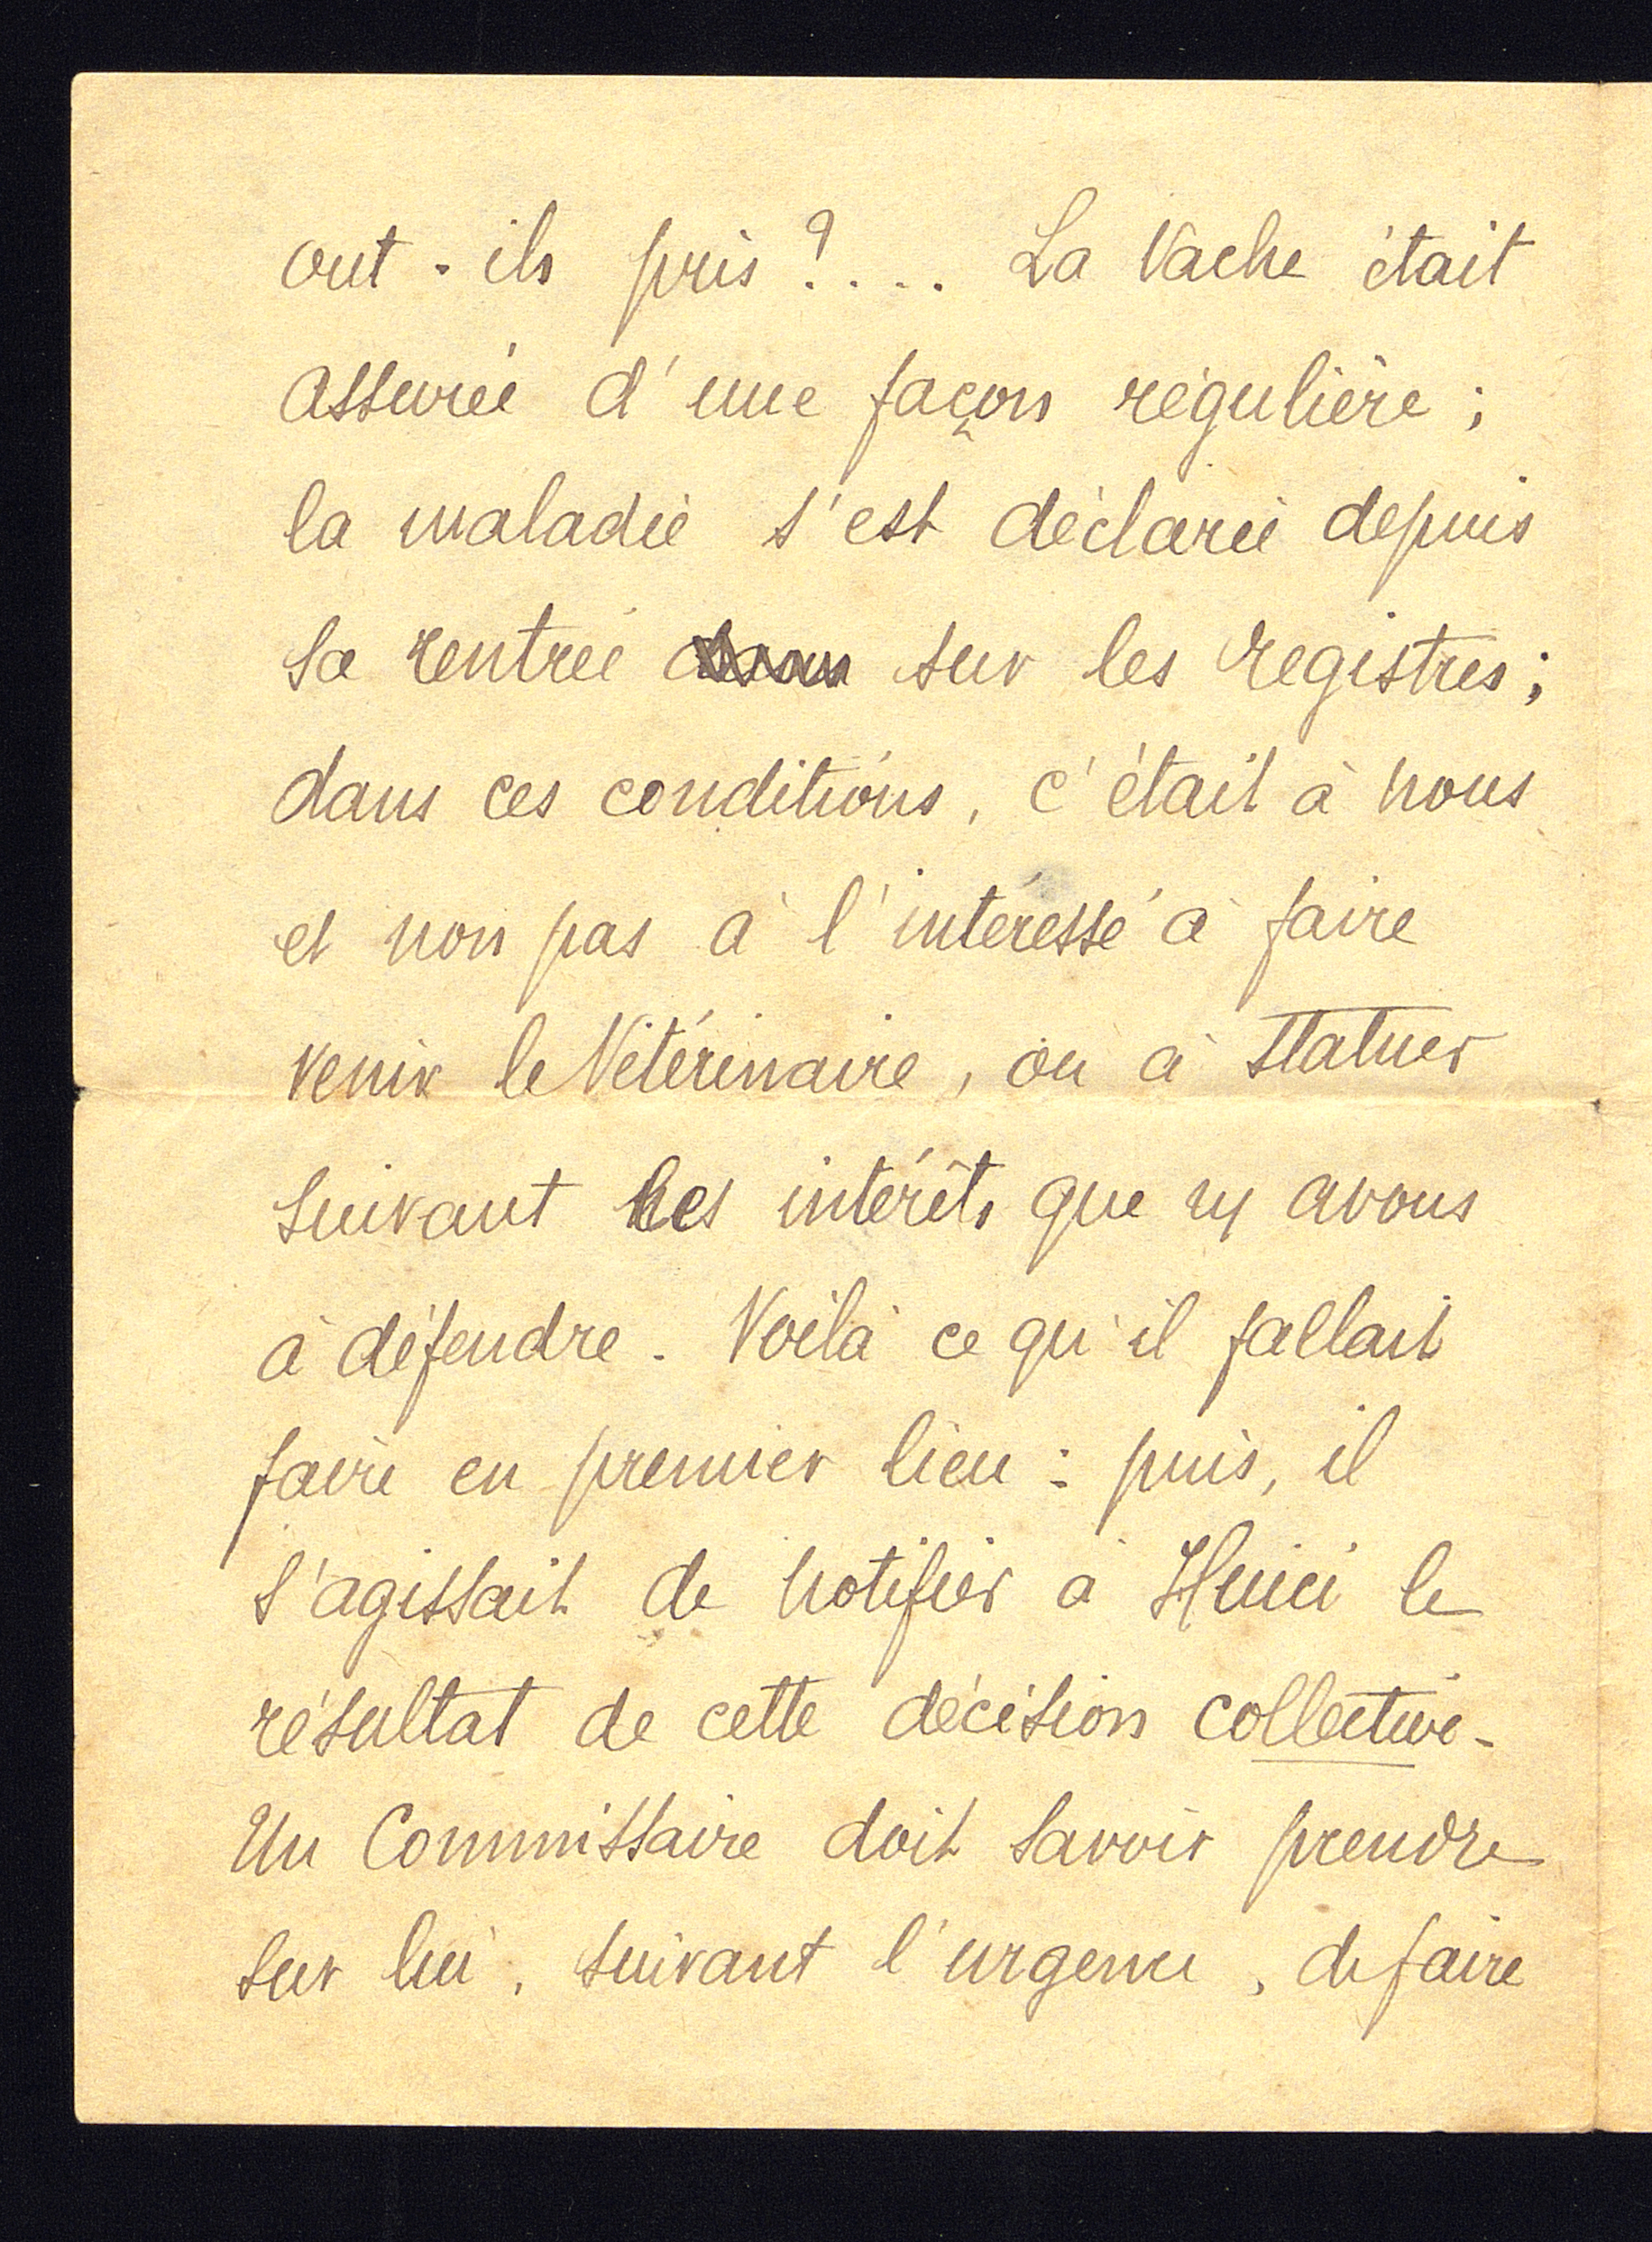 ont-ils pris ?.... La Vache était
assurée d'une façon régulière ;
la maladie s'est déclarée depuis
sa rentrée sur les registres ;
dans ces conditions, c'était à nous
et non pas à l'intéressé à faire
venir le Vétérinaire, ou à statuer
suivant les intérêts que ns avons
à défendre. Voilà ce qu'il fallait
faire en premier lieu : puis, il
s'agissait de notifier à Huici le
résultat de cette décision collective-
Un Commissaire doit savoir prendre
sur lui, suivant l'urgence, de faire